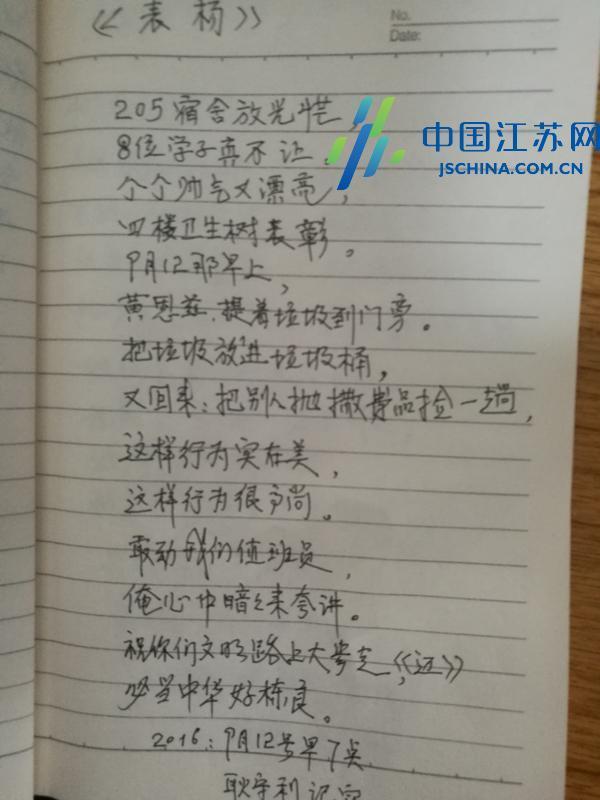 《表杨》
No.
Date:
中国江苏网
JSCHINA.COM.CN
205宿舍放光芒,
8位学子真不让。
个个帅气又漂亮,
四楼卫生树表彰。
9月12那早上,
黄恩兹.提着垃圾到门旁。
把垃圾放进垃圾桶,
又回来:把别人抛撒费品捡一趟,
这样行为实在美,
这样行为很高尚。
敢动我们值班员,
俺心中暗之来夸讲。
祝你们文明路上大步走,《迈》
必当中华好栋良。
2016:9月12号早7点
耿守利记